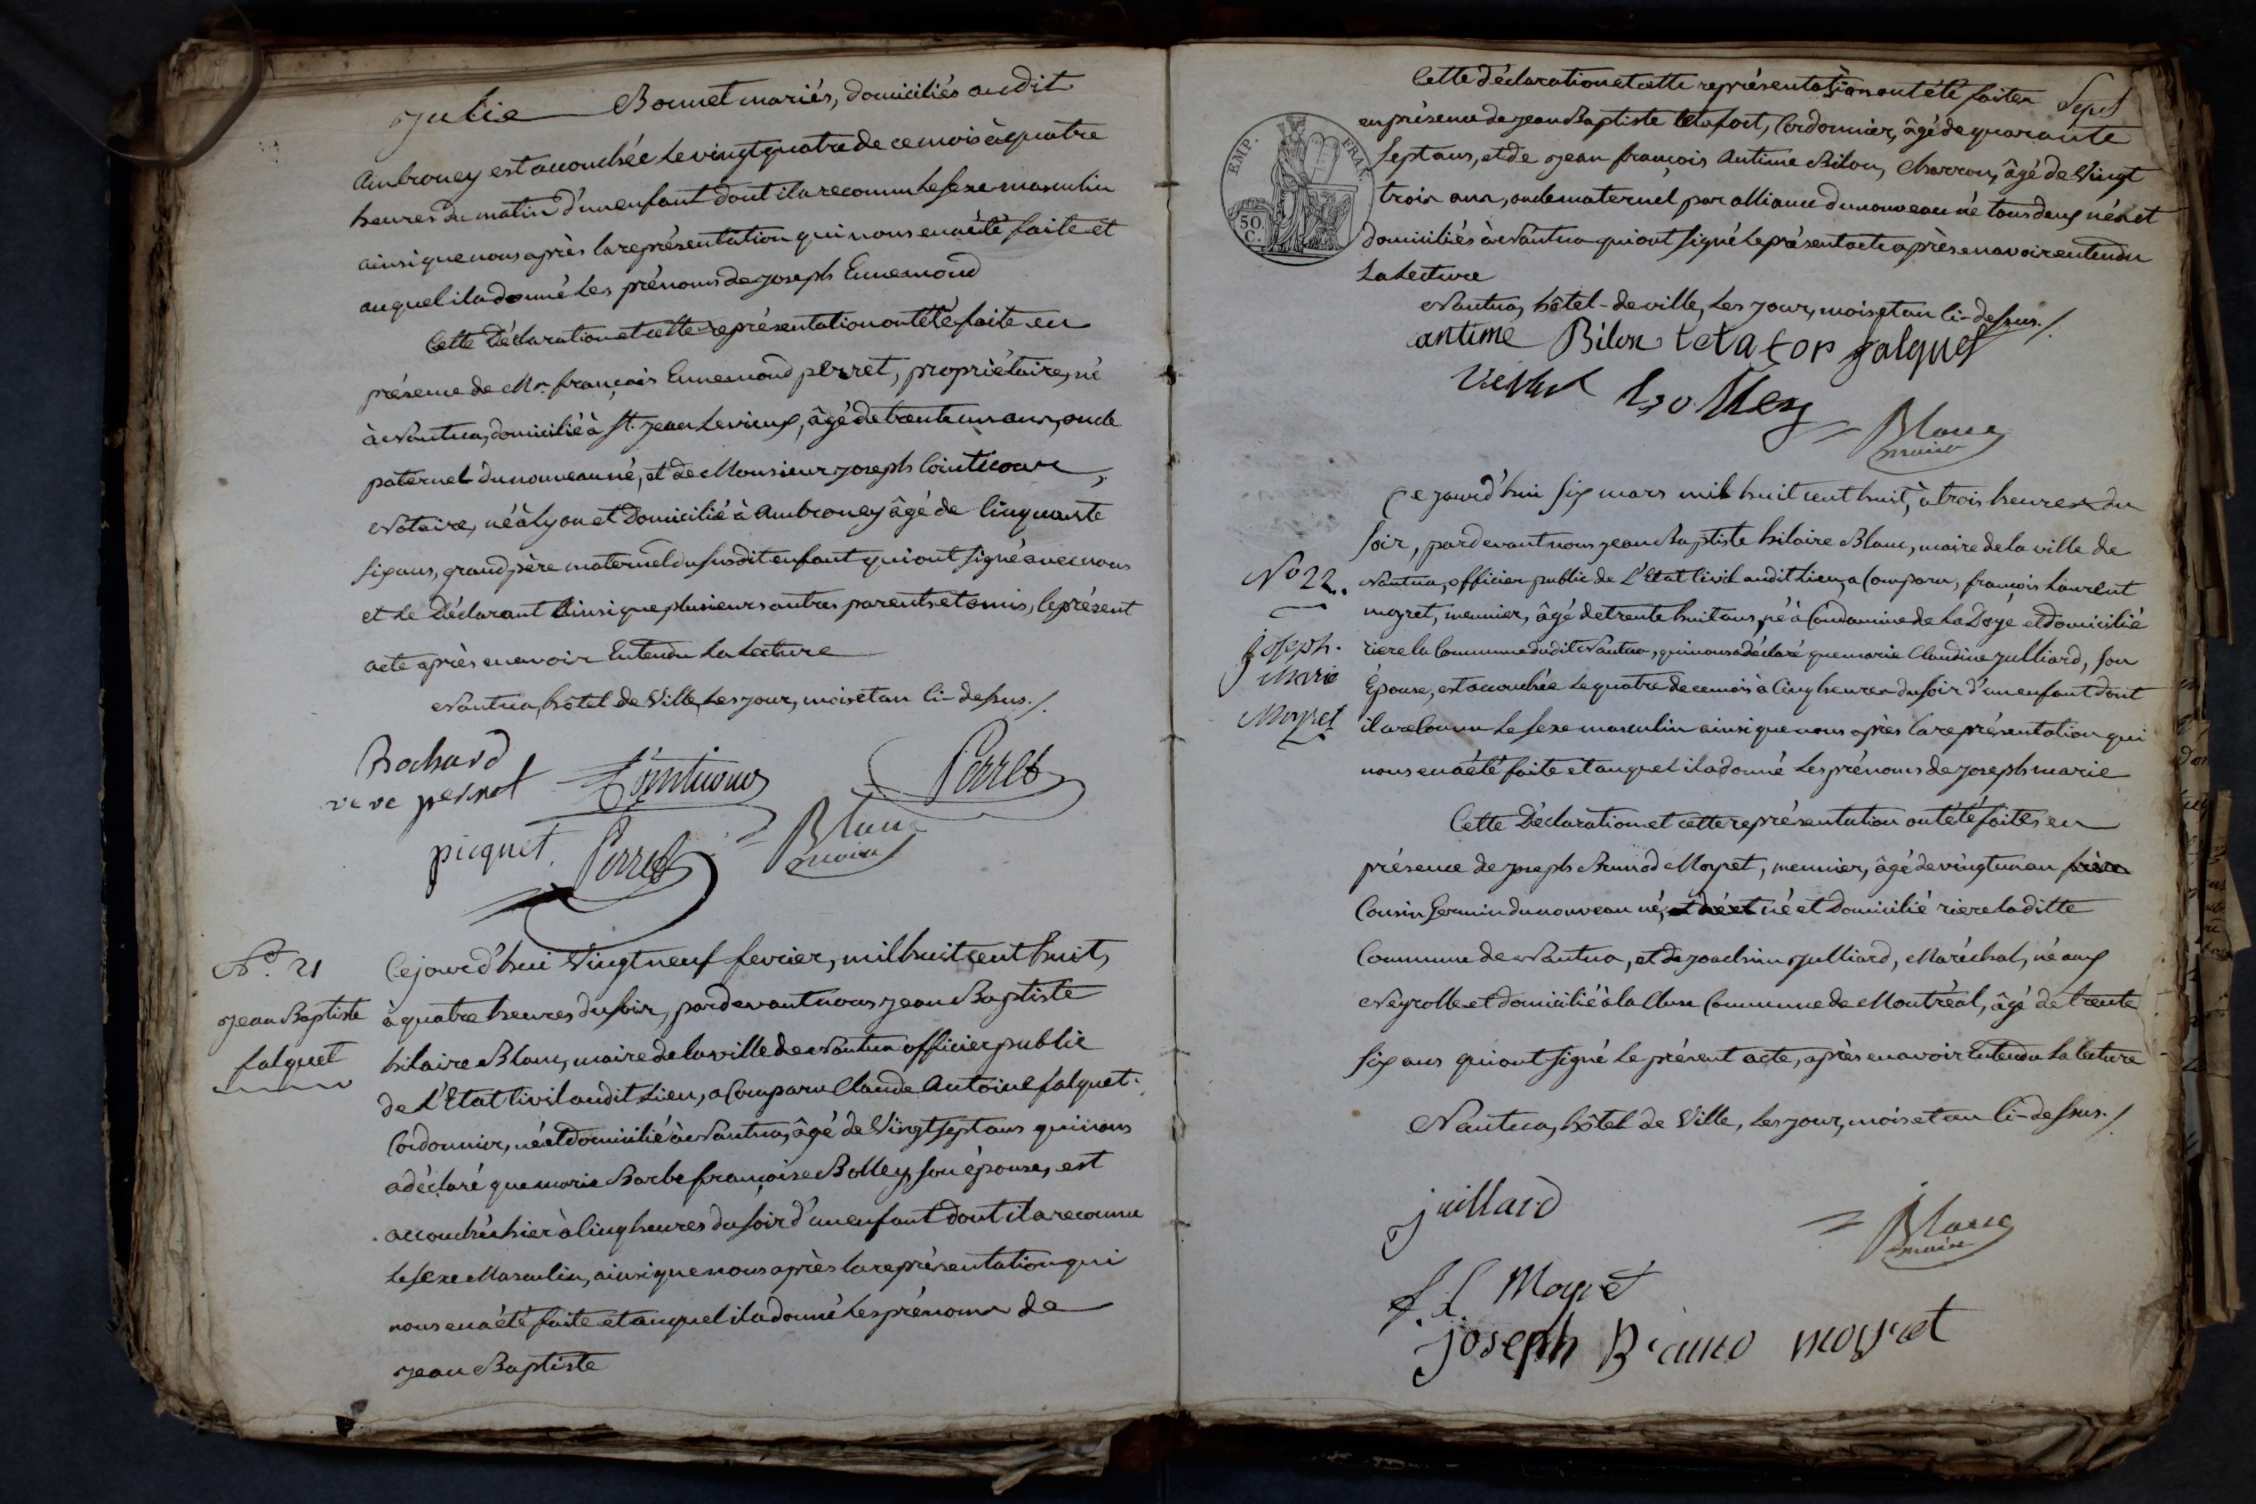 Julie Bonnet mariés, domiciliés audit
Ambronay est accouchée le vingt quatre de ce mois à quatre
heures du matin d'un enfant dont il a reconnu le sexe masculin
ainsi que nous après la représentation qui nous en a été faite et
auquel il a donné les prénoms de Joseph Ennemond
Cette déclaration et cette représentation ont été faite en
présence de Mr. françois Ennemond perret, propriétaire, né
à Nantua, domicilié à St. Jean le vieux, âgé de trente un ans, oncle
paternel du nouveau né, et de Monsieur Joseph
Notaire, né à Lyon et Domicilié à Ambronay âgé de Cinquante
six ans, grand père maternel du susdit enfant qui ont signé avec nous
et le Déclarant ainsi que plusieurs autres parents et amis, le présent
acte après en avoir Entendu la lecture
Nantua, hôtel de Ville, les jour, mois et an Ci-dessus ./.
Rochard
veve Perret
picquet Perret Blanc
maire
N.o 21
Jean Baptiste
falquet
Cejourd'hui Vingt neuf fevrier, mil huit cent huit,
à quatre heures du soir, pardevant nous Jean Baptiste
hilaire Blanc, maire de la ville de Nantua officier public
de L'Etat Civil audit Lieu, a Comparu Claude Antoine falquet
Cordonnier, né et domicilié à Nantua, âgé de Vingt sept ans qui nous
a déclaré que marie Barbe françoise Bolley, son épouse, est
accouchée hier à Cinq heures du soir d'un enfant dont il a reconnu
le sexe Masculin, ainsi que nous après la représentation qui
nous en a été faite et auquel il a donné les prénoms de
Jean Baptiste
Sept
Cette déclaration et cette représentation ont été faites
en présence de Jean Baptiste tetafort, Cordonnier, âgé de quarante
sept ans, et de Jean françois Antime Bilon, Charron, âgé de Vingt
trois ans, oncle maternel par alliance du nouveau né tous deux nés et
domiciliés à Nantua qui ont signé le présent acte après en avoir entendu
La Lecture
EMP. FRA.
50.
C.
Nantua, hôtel-de ville, les jour, mois et an Ci-dessus ./.
antime Bilon tetafor falquet
Blanc
maire
N.o 22.
Joseph
Marie
Moyret
Cejourd'hui six mars mil huit cent huit, à trois heures du
soir, pardevant nous Jean Baptiste hilaire Blanc, maire de la ville de
Nantua, officier public de L'Etat Civil audit Lieu, a Comparu, françois Laurent
moyret, meunier, âgé de trente huit ans, né à Condamine de La Doye et domicilié
riere la Commune dudit Nantua, qui nous a déclaré que marie Claudine Julliard, son
Épouse, est accouchée le quatre de ce mois à Cinq heures du soir d'un enfant dont
il a reconnu le sexe masculin ainsi que nous après la représentation qui
nous en a été faite et auquel il a donné les prénoms de Joseph marie
Cette Déclaration et cette représentation ont été faites en
présence de Joseph Moyret, meunier, âgé de vingt un an
Cousin Germain du nouveau né, né et Domicilié riere la ditte
Commune de Nantua, et de Joachim Julliard, Maréchal, né aux
Neyrolle et domicilié à la Cluse Commune de Montréal, âgé de trente
six ans qui ont signé le présent acte, après en avoir Entendu la lecture
Nantua, hôtel de Ville, les jour, mois et an Ci-dessus ./.
juillard
Blanc
maire
f. l. Moyret
joseph moyret